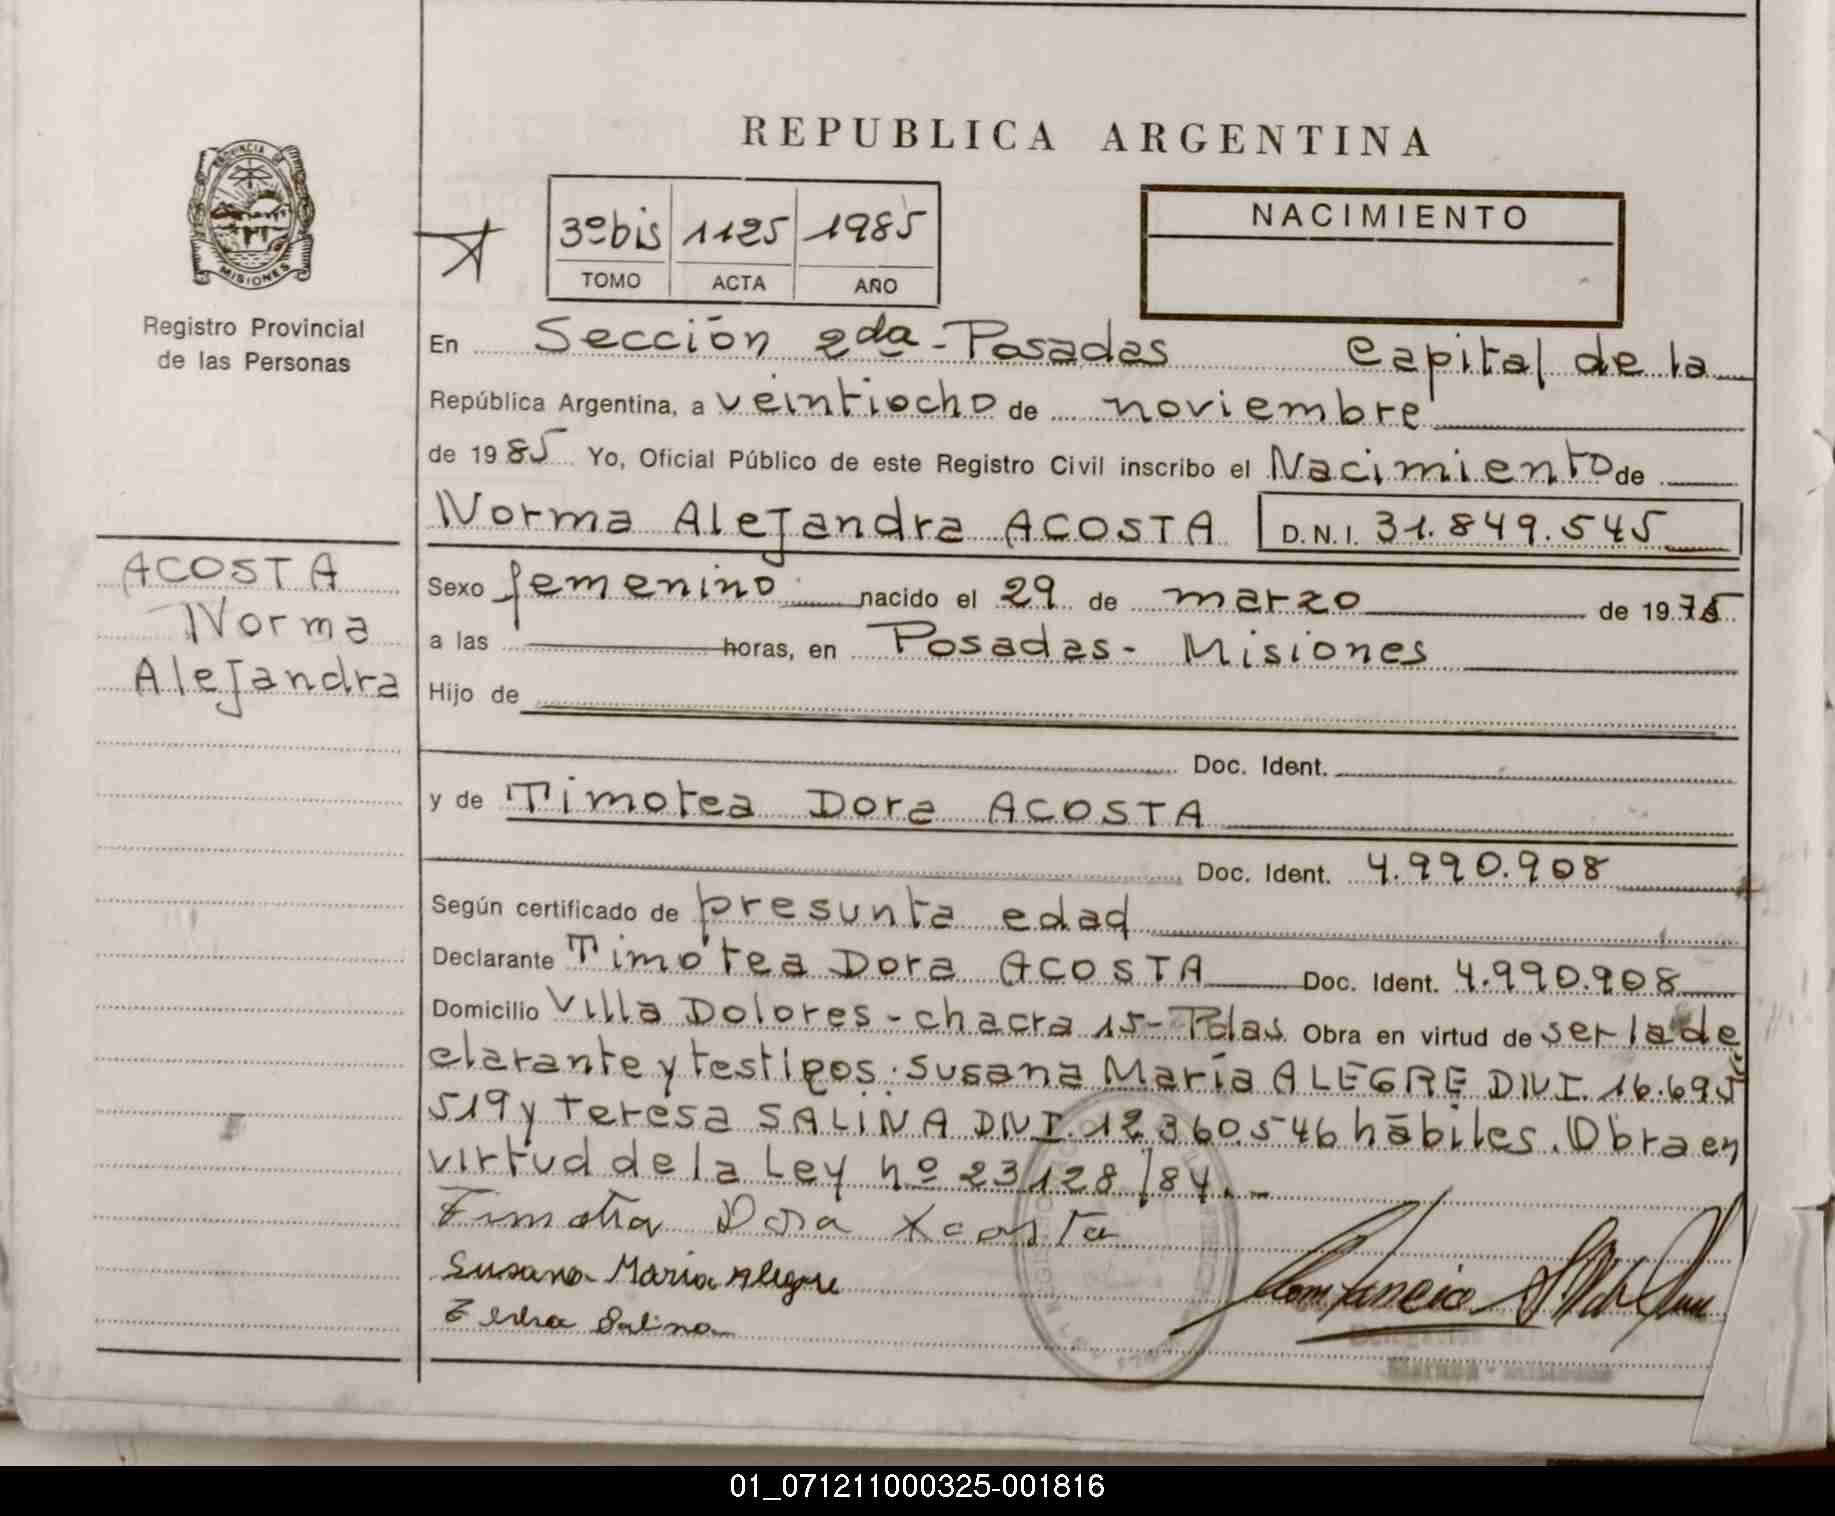 REPUBLICA ARGENTINA
PROVINCIA DE
MISIONES
Registro Provincial
de las Personas
3º bis 1125 1985
TOMO ACTA AÑO
NACIMIENTO
En Sección 2da - Posadas Capital de la
República Argentina, a veintiocho de noviembre
de 1985 Yo, Oficial Público de este Registro Civil inscribo el Nacimiento de
Norma Alejandra ACOSTA D.N.I. 31.849.545
ACOSTA
Norma
Alejandra
Sexo femenino nacido el 29 de marzo de 1975
a las horas, en Posadas - Misiones
Hijo de
Doc. Ident.
y de Timotea Dora ACOSTA
Doc. Ident. 4.990.908
Según certificado de presunta edad
Declarante Timotea Dora ACOSTA Doc. Ident. 4.990.908
Domicilio Villa Dolores - chacra 15 - Pdas. Obra en virtud de ser la de
clarante y testigos: Susana María ALEGRE DNI. 16.695
519 y Teresa SALINA DNI. 12.360.546 hábiles. Obra en
virtud de la Ley nº 23128/84.-
Timotea Dora Acosta
Susana Maria Alegre
Salina
01_071211000325-001816